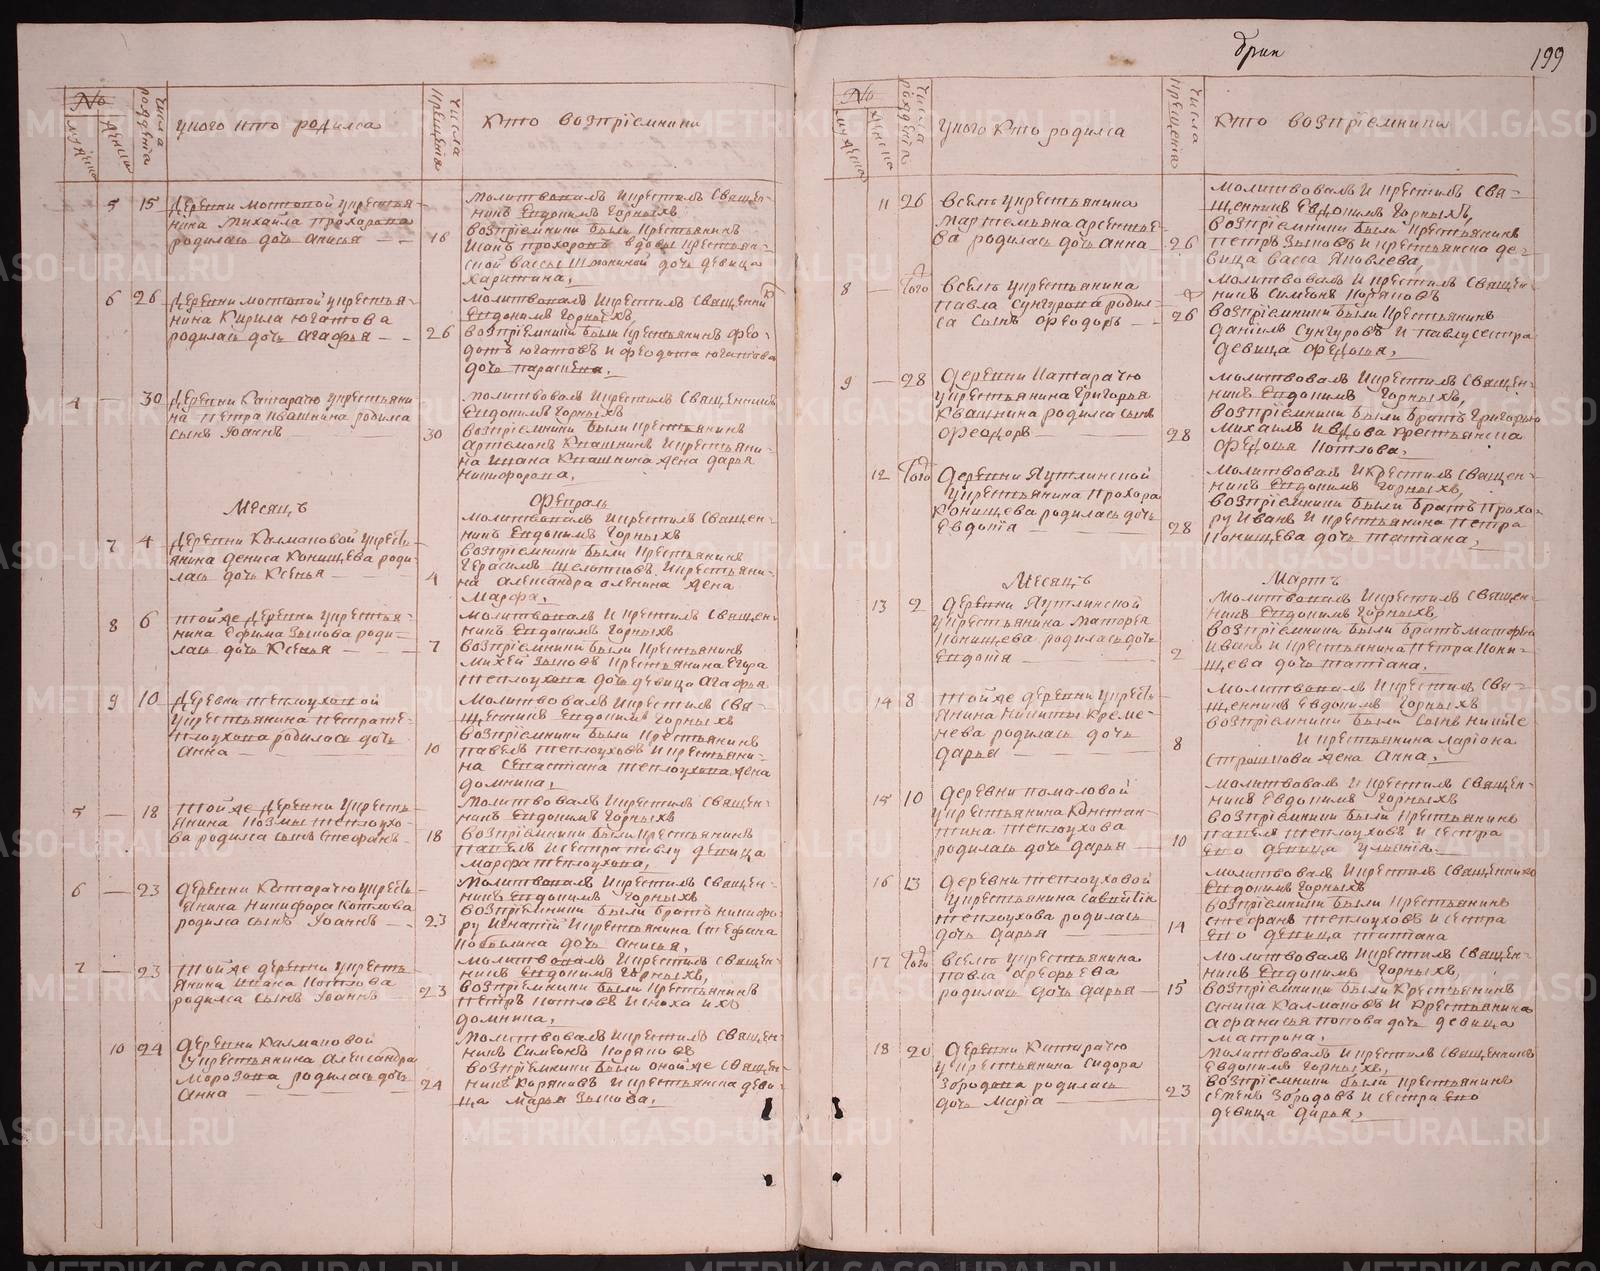 199
№
мужеска
женска
числа рождения
у кого кто родился
числа крещения
кто возприемники
5 15 деревни мостовой у крестья-
нина михаила прохорова
родилась дочь анисья 16
молитвовалъ и крестилъ священ-
никъ Евдокимъ Горныхъ
возприемники были крестьянинъ
Иванъ прохоровъ вдовы крестьян-
ской вассы дочь девица
харитина,
6 26 деревни мостовой у крестья-
нина Кирила югатова
родилась дочь агафья 26
молитвовалъ и крестилъ священникъ
Евдокимъ Горныхъ,
возприемники были крестьянинъ фео-
дотъ югатовъ и феодота югатова
дочь парасковья,
4 — 30 деревни Катарачю у крестьяни
на петра Квашнина родился
сынъ Иоаннъ 30
молитвовалъ и крестилъ священникъ
Евдокимъ Горныхъ
возприемники были крестьянинъ
артемонъ Квашнинъ и крестьяни-
на ивана Квашнина жена дарья
никифорова,
Месяцъ Февраль
7 4 деревни Калмаковой у кресть-
янина дениса Конищева роди-
лась дочь Ксенья 4
молитвовалъ и крестилъ священ-
никъ Евдокимъ Горныхъ
возприемники были крестьянинъ
Герасимъ и крестьяни-
на александра оленина жена
Марфа,
8 6 тойже деревни у крестья-
нина Ефима Зыкова роди-
лась дочь Ксенья 7
молитвовалъ и крестилъ священ-
никъ Евдокимъ Горныхъ
возприемники были крестьянинъ
михей Зыковъ крестьянина Егора
теплоухова дочь девица агафья
9 10 деревни теплоуховой
у крестьянина петра те-
плоухова родилась дочь
анна 10
молитвовалъ и крестилъ свя-
щенникъ Евдокимъ Горныхъ
возприемники были крестьянинъ
павелъ теплоуховъ и крестьяни-
на севастиана теплоухова жена
домнина,
5 — 18 тойже деревни у кресть-
янина козмы теплоухо-
ва родился сынъ стефанъ 18
молитвовалъ и крестилъ священ-
никъ Евдокимъ Горныхъ
возприемники были крестьянинъ
павелъ и сестра павлу девица
марфа теплоухова,
6 — 23 деревни Катарачю у кресть-
янина Никифора Котлова
родился сынъ Иоаннъ 23
молитвовалъ и крестилъ священ-
никъ Евдокимъ Горныхъ
возприемники были братъ никифо-
ру Игнатий и крестьянина стефана
кобылина дочь анисья,
7 — 23 тойже деревни у кресть-
янина ивана Котлова
родился сынъ Иоаннъ 23
молитвовалъ и крестилъ священ-
никъ Евдокимъ Горныхъ,
возприемники были крестьянинъ
петръ Котловъ и сноха ихъ
домнина,
10 24 деревни Калмаковой
у крестьянина александра
Морозова родилась дочь
анна 24
молитвовалъ и крестилъ священ-
никъ Симеонъ Коряковъ
возприемники были онойже священ-
никъ Коряковъ и крестьянска деви-
ца марья Зыкова,
№
мужеска
женска
числа рождения
у кого кто родился
числа крещения
кто возприемники
11 26 в селе у крестьянина
мартемьяна арсентье-
ва родилась дочь анна 26
молитвовалъ и крестилъ свя-
щенникъ Евдокимъ Горныхъ,
возприемники были крестьянинъ
петръ Зыковъ и крестьянска де-
вица васса яковлева,
8 — того в селе у крестьянина
павла сунгурова родил-
ся сынъ феодоръ 26
молитвовалъ и крестилъ священ-
никъ Симеонъ Коряковъ
возприемники были крестьянинъ
даниилъ сунгуровъ и павлу сестра
девица федосья,
9 — 28 деревни Катарачю
у крестьянина Григорья
Квашнина родился сынъ
феодоръ 28
молитвовалъ и крестилъ священ-
никъ Евдокимъ Горныхъ,
возприемники были братъ Григорью
михаилъ и вдова крестьянска
федосья Котлова,
12 того деревни яутлинской
у крестьянина прохора
Конищева родилась дочь
Евдокия 28
молитвовалъ и крестилъ священ-
никъ Евдокимъ Горныхъ,
возприемники были братъ прохо-
ру иванъ и крестьянина петра
Конищева дочь татиана,
Месяцъ Мартъ
13 2 деревни яутлинской
у крестьянина матфея
Конищева родилась дочь
Евдокия 2
молитвовалъ и крестилъ священ-
никъ Евдокимъ Горныхъ,
возприемники были братъ матфею
иванъ и крестьянина петра Кони-
щева дочь татиана,
14 8 тойже деревни у кресть-
янина никиты Креме-
нева родилась дочь
дарья 8
молитвовалъ и крестилъ свя-
щенникъ Евдокимъ Горныхъ
возприемники были сынъ никите
и крестьянина лариона
жена анна,
15 10 деревни помаловой
у крестьянина Констан-
тина теплоухова
родилась дочь дарья 10
молитвовалъ и крестилъ священ-
никъ Евдокимъ Горныхъ
возприемники были крестьянинъ
павелъ теплоуховъ и сестра
его девица ульяния.
16 13 деревни теплоуховой
у крестьянина савватия
теплоухова родилась
дочь дарья 14
молитвовалъ и крестилъ священникъ
Евдокимъ Горныхъ
возприемники были крестьянинъ
стефанъ теплоуховъ и сестра
его девица татиана
17 того в селе у крестьянина
павла арефьева
родилась дочь дарья 15
молитвовалъ и крестилъ священ-
никъ Евдокимъ Горныхъ,
возприемники были крестьянинъ
Калмаковъ и крестьянина
афанасья попова дочь девица
матрона,
18 20 деревни Катарачю
у крестьянина Сидора
Зородова родилась
дочь мария 23
молитвовалъ и крестилъ священникъ
Евдокимъ Горныхъ,
возприемники были крестьянинъ
семенъ Зородовъ и сестра его
девица дарья,
METRIKI.GASO-URAL.RU